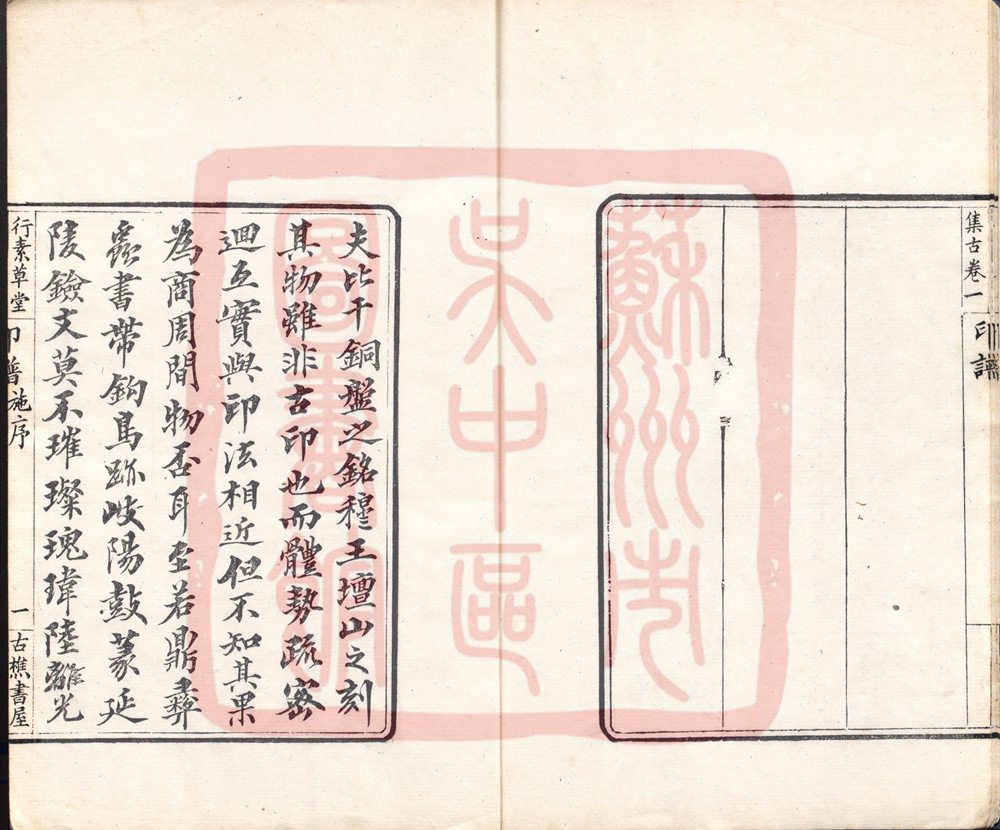 集古卷一
印譜
夫比干銅盤之銘穆王壇山之刻
其物雖非古印也而體勢疏密
迴互實與印法相近但不知其果
為商周間物否耳至若鼎彝
蟲書帶鉤鳥跡岐陽鼓篆延
陵鐱文莫不璀璨瑰瑋陸離光
行素草堂
印譜施序
一
古樵書屋
蘇州市
吳中區
圖書館